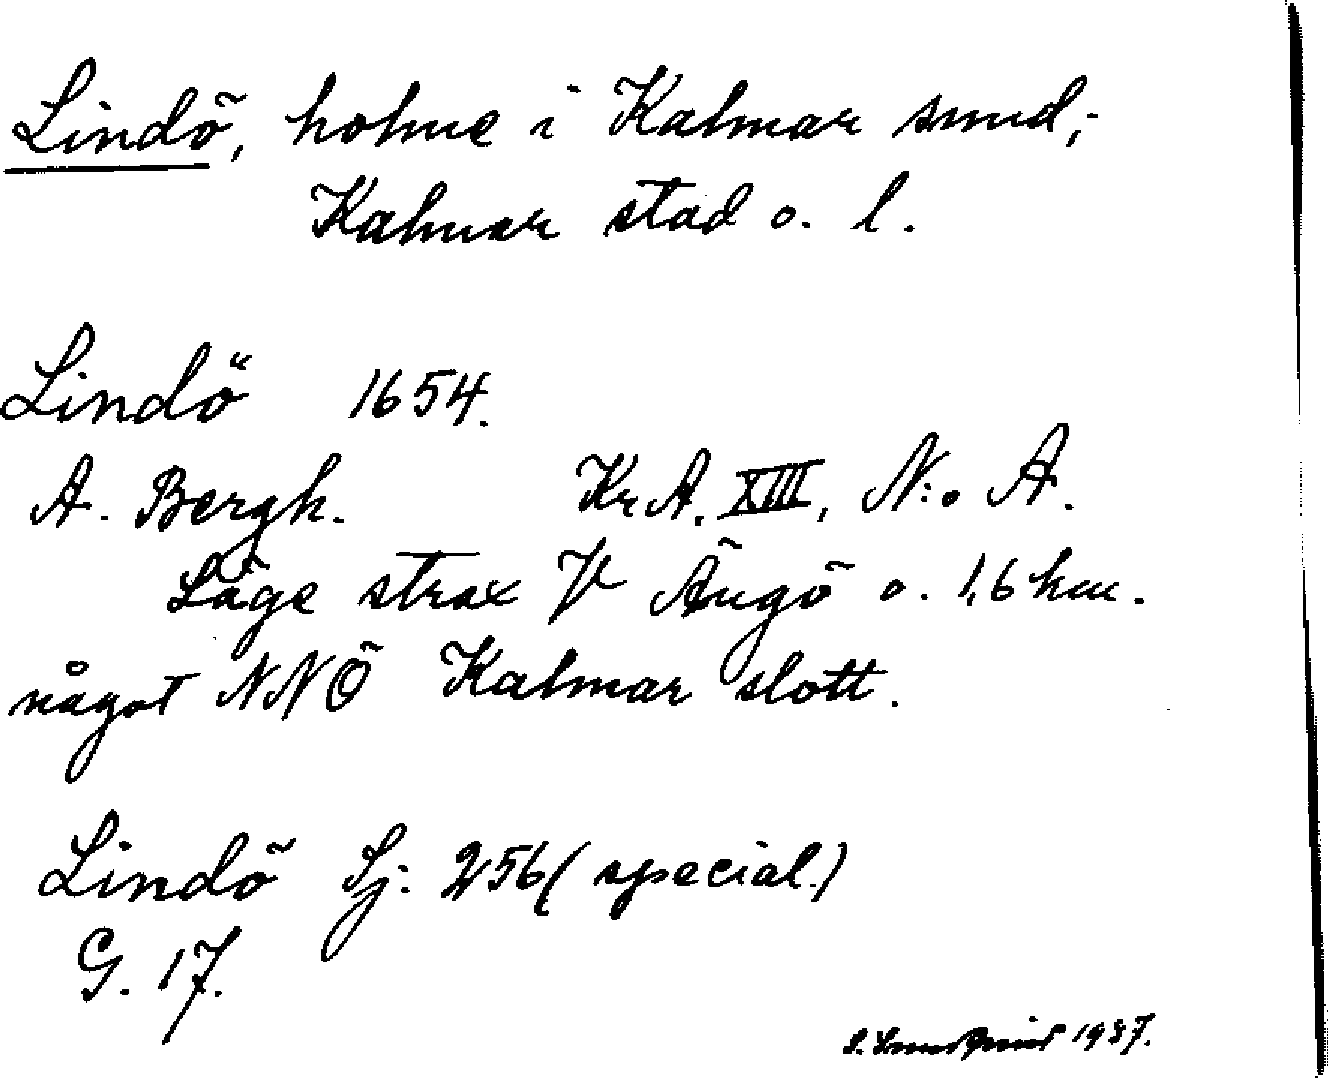 Lindö, holme i Kalmar sund,-
Kalmar stad o. l.
Lindö 1654.
A. Bergh. Kr A. XIII, N:o A.
Läge strax V Ängö o. 1,6 km.
något NNÖ Kalmar slott.
Lindö Sj: 256 (special.)
G. 17.
1937.